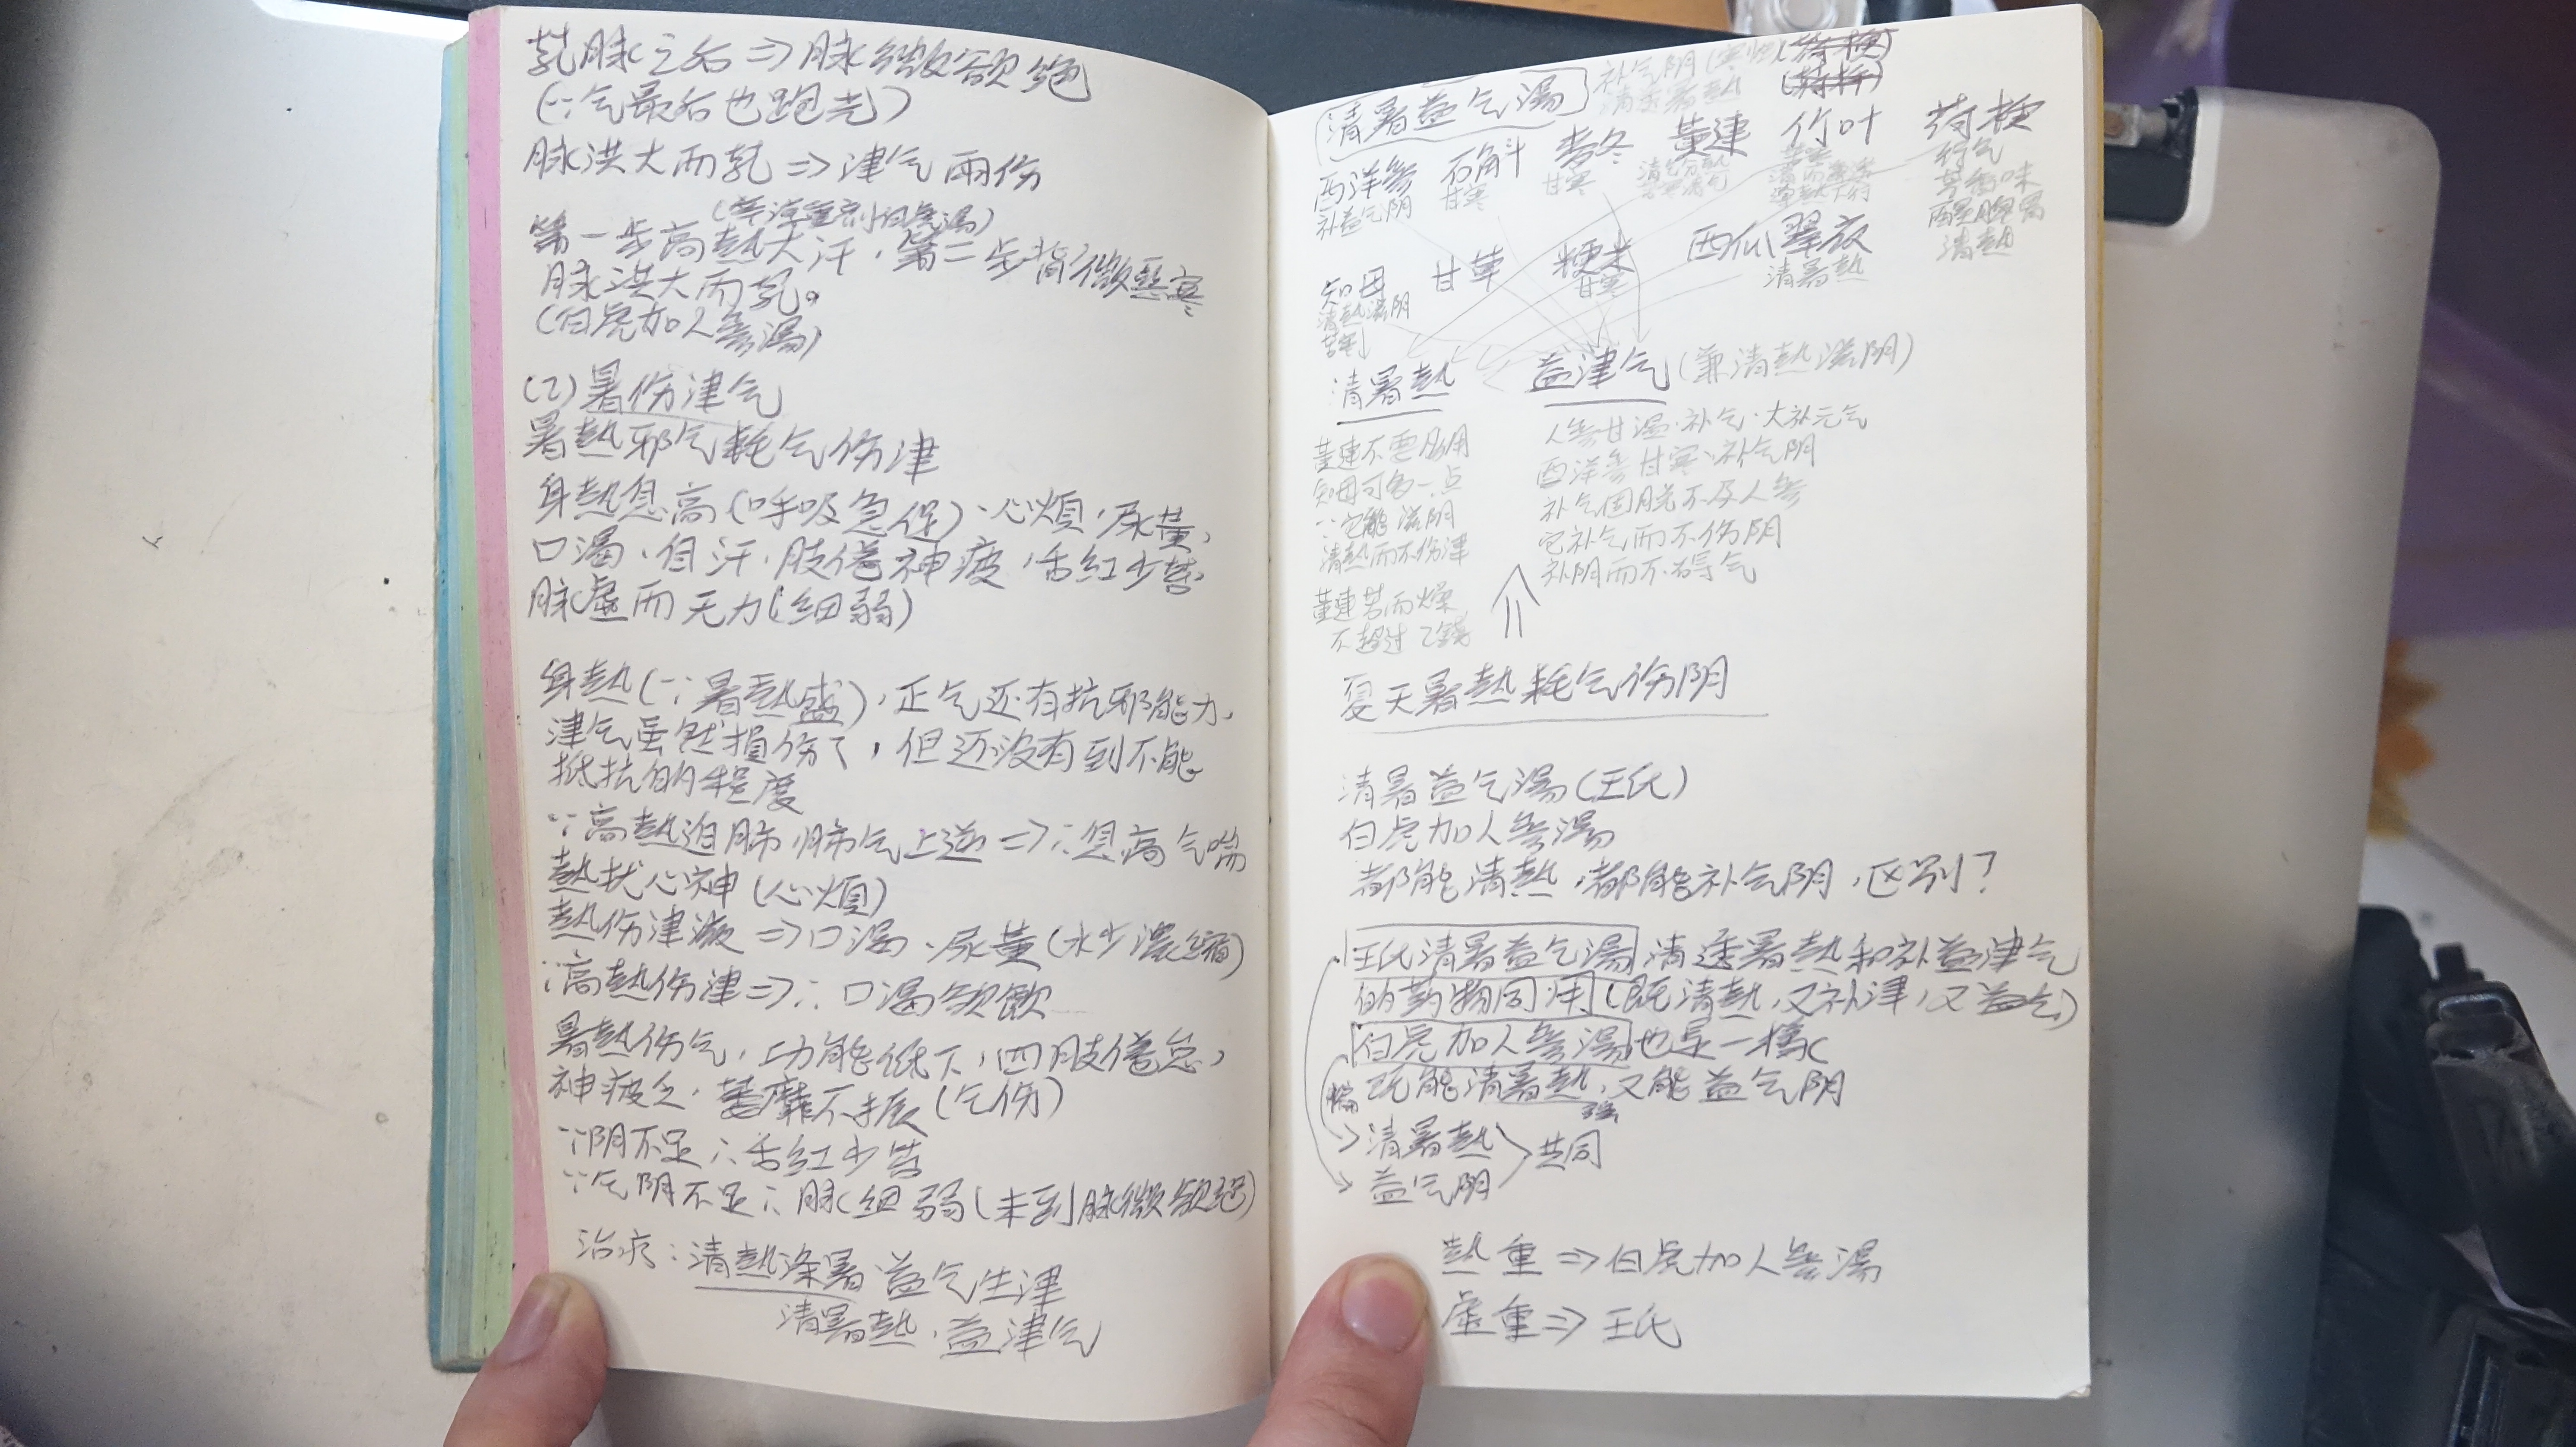 芤脉之后⇒脉微欲绝
(∵气最后也跑光)
脉洪大而芤⇒津气兩伤
第一步高熱大汗，第二步背微惡寒
脉洪大而芤。
(白虎加人参湯)
(2)暑伤津气
暑熱邪气耗气伤津
身熱息高(呼吸急促)、心煩，尿黃、
口渴、自汗、肢倦神疲，舌紅少苔
脉虛而无力(细弱)
身熱(∵暑熱盛)，正气还有抗邪能力、
津气虽然損伤了，但还没有到不能
抵抗的程度
∵高熱迫肺，肺气上逆⇒∴息高气喘
熱扰心神(心煩)
熱伤津液⇒口渴、尿黃(水少濃缩)
∵高熱伤津⇒∴口渴欲飲
暑熱伤气，功能低下，四肢倦怠，
神疲乏、萎靡不振(气伤)
∵阴不足∴舌紅少苔
∵气阴不足∴脉细弱(未到脉微欲绝)
治疗：清熱滌暑 益气生津
清暑熱、益津气
清暑益气湯 补气阴
清 暑熱
西洋参 石斛 麥冬 黃連 竹叶 荷梗
补益气阴 甘寒 甘寒 行气
醒脾胃
清熱
知母 甘草 粳米 西瓜翠衣
清熱滋阴 甘寒 清暑熱
清暑熱 益津气(兼清熱滋阴)
黃連不要多用
知母可多一点
∵它能滋阴
清熱而不伤津
黃連苦而燥
不超过2錢
人参甘温·补气·大补元气
西洋参甘寒、补气阴
补气固脱不及人参
它补气而不伤阴
补阴而不碍气
夏天暑熱耗气伤阴
清暑益气湯(王氏)
白虎加人参湯
都能清熱，都能补气阴，区别？
王氏清暑益气湯 清透暑熱和补益津气
的药物同用(既清熱，又补津，又益气)
白虎加人参湯也是一樣
偏 既能清暑熱，又能益气阴
強
清暑熱
益气阴 共同
熱重⇒白虎加人参湯
虛重⇒王氏